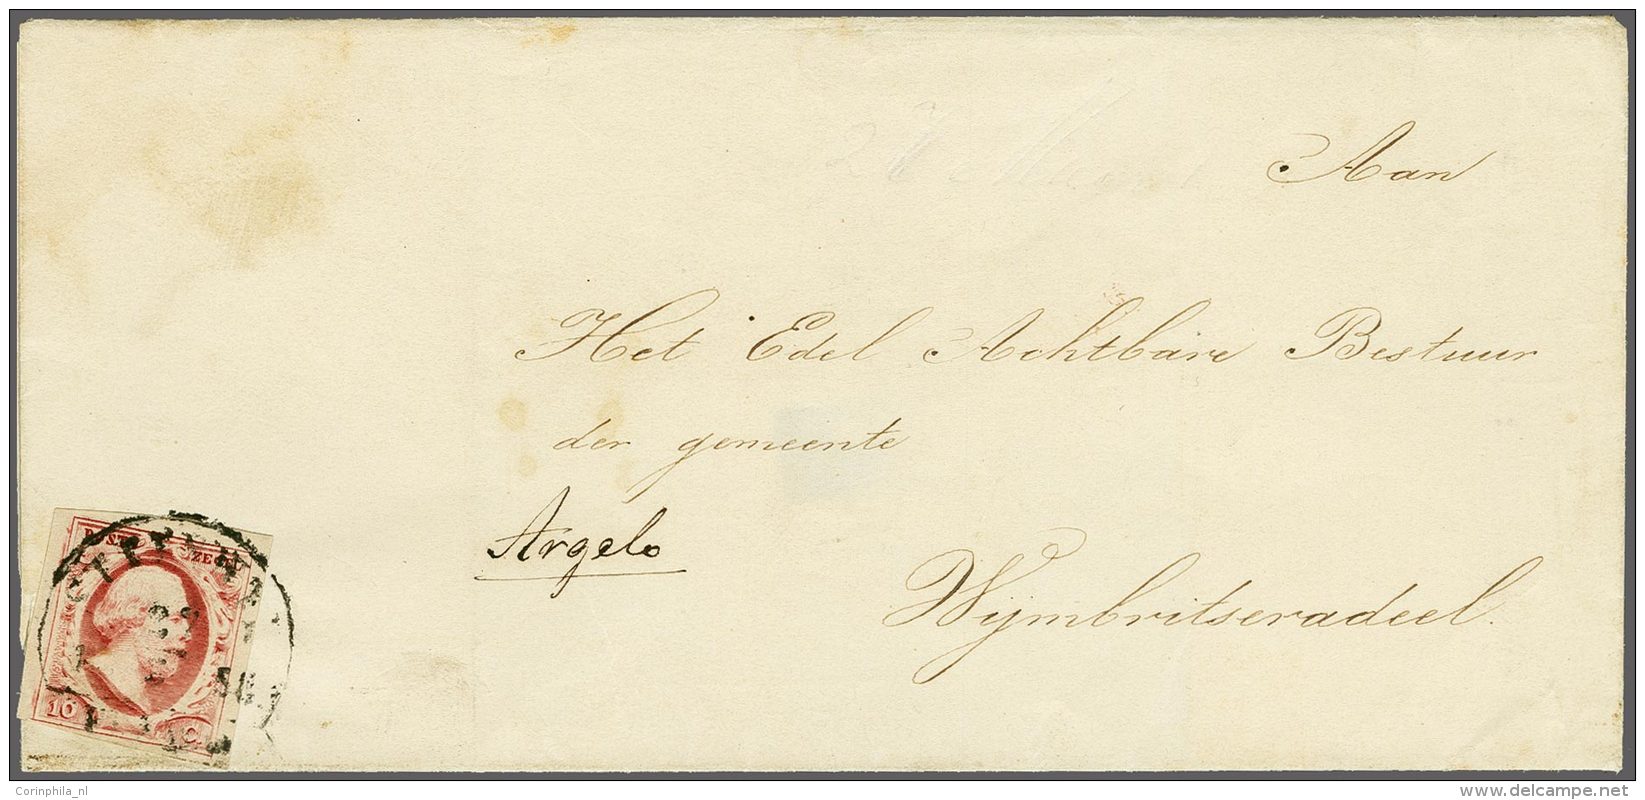 Aan
Het Edel Achtbare Bestuur
der gemeente
Argelo
Wijmbritseradeel.
POST ZEGEL
10 C.
Corinphila_nl
www.delcampe.net